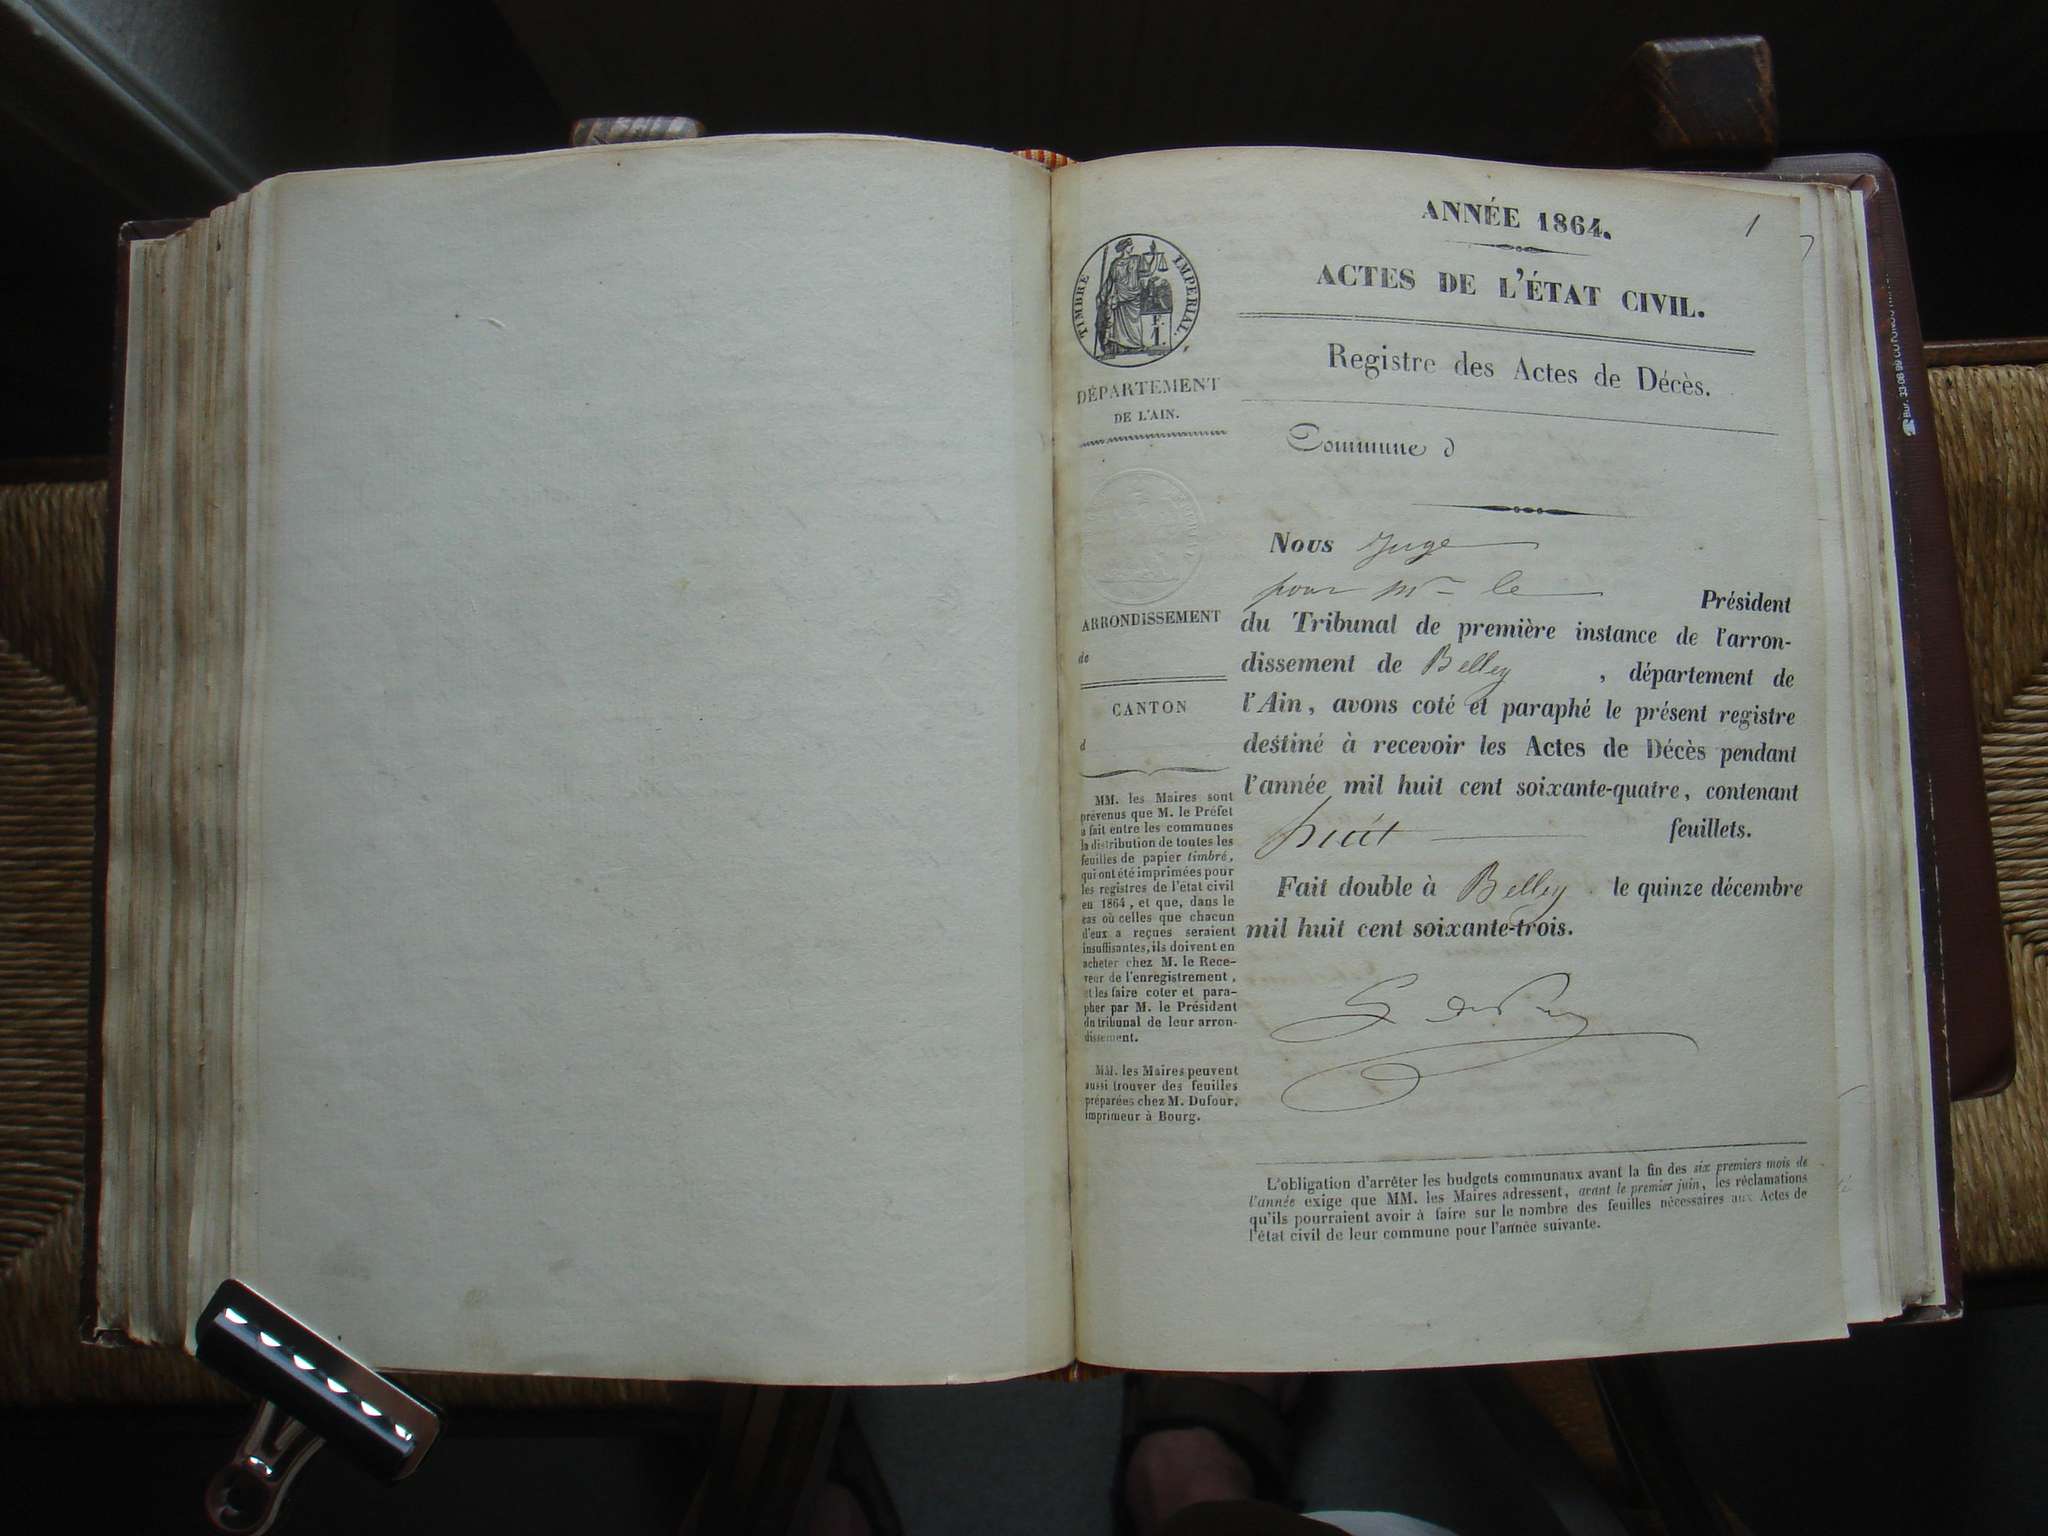 ANNÉE 1864.
1
ACTES DE L'ÉTAT CIVIL.
Registre des Actes de Décès.
Commune d
TIMBRE IMPÉRIAL.
F.
1.
DÉPARTEMENT
DE L'AIN.
ARRONDISSEMENT
de
CANTON
d
MM. les Maires sont
prévenus que M. le Préfet
a fait entre les communes
la distribution de toutes les
feuilles de papier timbré,
qui ont été imprimées pour
les registres de l'état civil
en 1864, et que, dans le
cas où celles que chacun
d'eux a reçues seraient
insuffisantes, ils doivent en
acheter chez M. le Rece-
veur de l'enregistrement,
et les faire coter et para-
pher par M. le Président
du tribunal de leur arron-
dissement.
MM. les Maires peuvent
aussi trouver des feuilles
préparées chez M. Dufour,
imprimeur à Bourg.
Nous Juge
pour Mr le Président
du Tribunal de première instance de l'arron-
dissement de Belley, département de
l'Ain, avons coté et paraphé le présent registre
destiné à recevoir les Actes de Décès pendant
l'année mil huit cent soixante-quatre, contenant
huit feuillets.
Fait double à Belley le quinze décembre
mil huit cent soixante-trois.
L'obligation d'arrêter les budgets communaux avant la fin des six premiers mois de
l'année exige que MM. les Maires adressent, avant le premier juin, les réclamations
qu'ils pourraient avoir à faire sur le nombre des feuilles nécessaires aux Actes de
l'état civil de leur commune pour l'année suivante.